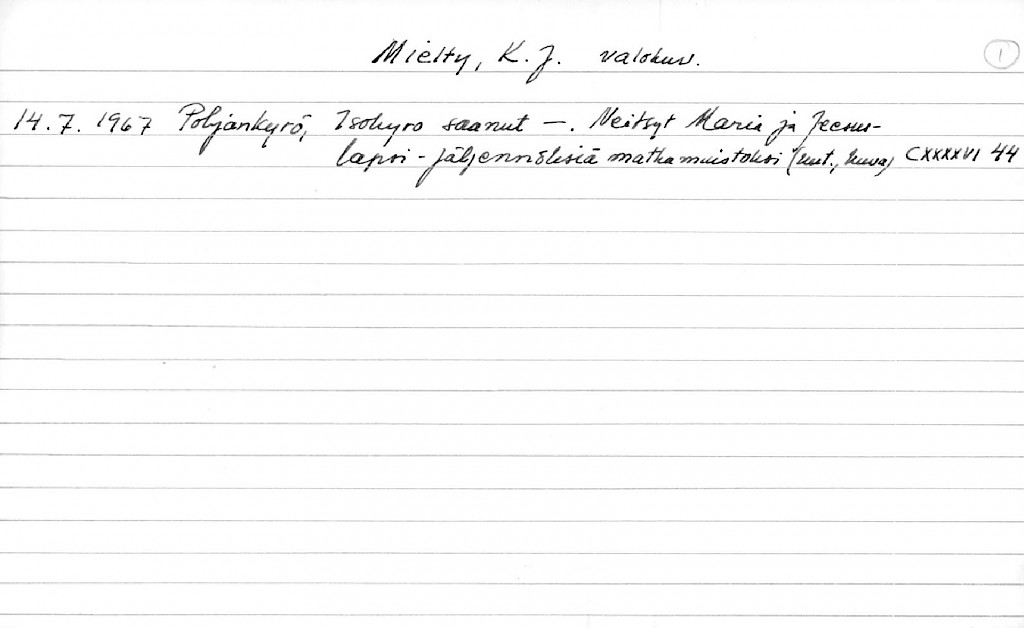 Mielty, K. J. valokuv. 1
14.7.1967 Pohjankyrö, Isokyrö saanut —. Neitsyt Maria ja Jeesus-
lapsi - jäljennöksiä matkamuistoksi (uut., kuva) CXXXXVI 44